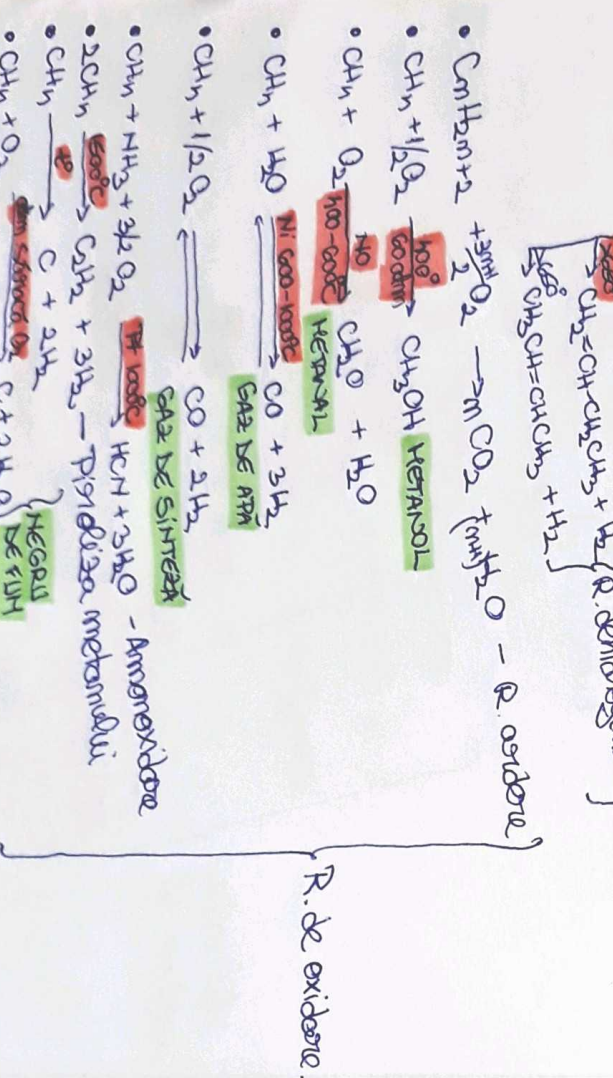 CH₂=CH-CH₂CH₃ + H₂
CH₃CH=CHCH₃ + H₂
• CnH2n+2 + 3n+1/2 O₂ → nCO₂ + (n+1)H₂O - R. ardere
• CH₄ + 1/2O₂ 400° 60 atm → CH₃OH METANOL
• CH₄ + O₂ NO 400-600°C → CH₂O + H₂O
METANAL
• CH₄ + H₂O Ni 600-1000°C ⇌ CO + 3H₂
GAZ DE APĂ
• CH₄ + 1/2 O₂ ⇌ CO + 2H₂
GAZ DE SINTEZĂ
• CH₄ + NH₃ + 3/2 O₂ Pt 1000°C → HCN + 3H₂O - Amonoxidare
• 2CH₄ 1500°C → C₂H₂ + 3H₂ - Piroliza metanului
• CH₄ t° → C + 2H₂
NEGRU DE FUM
• CH₄ + O₂
R. de oxidare.